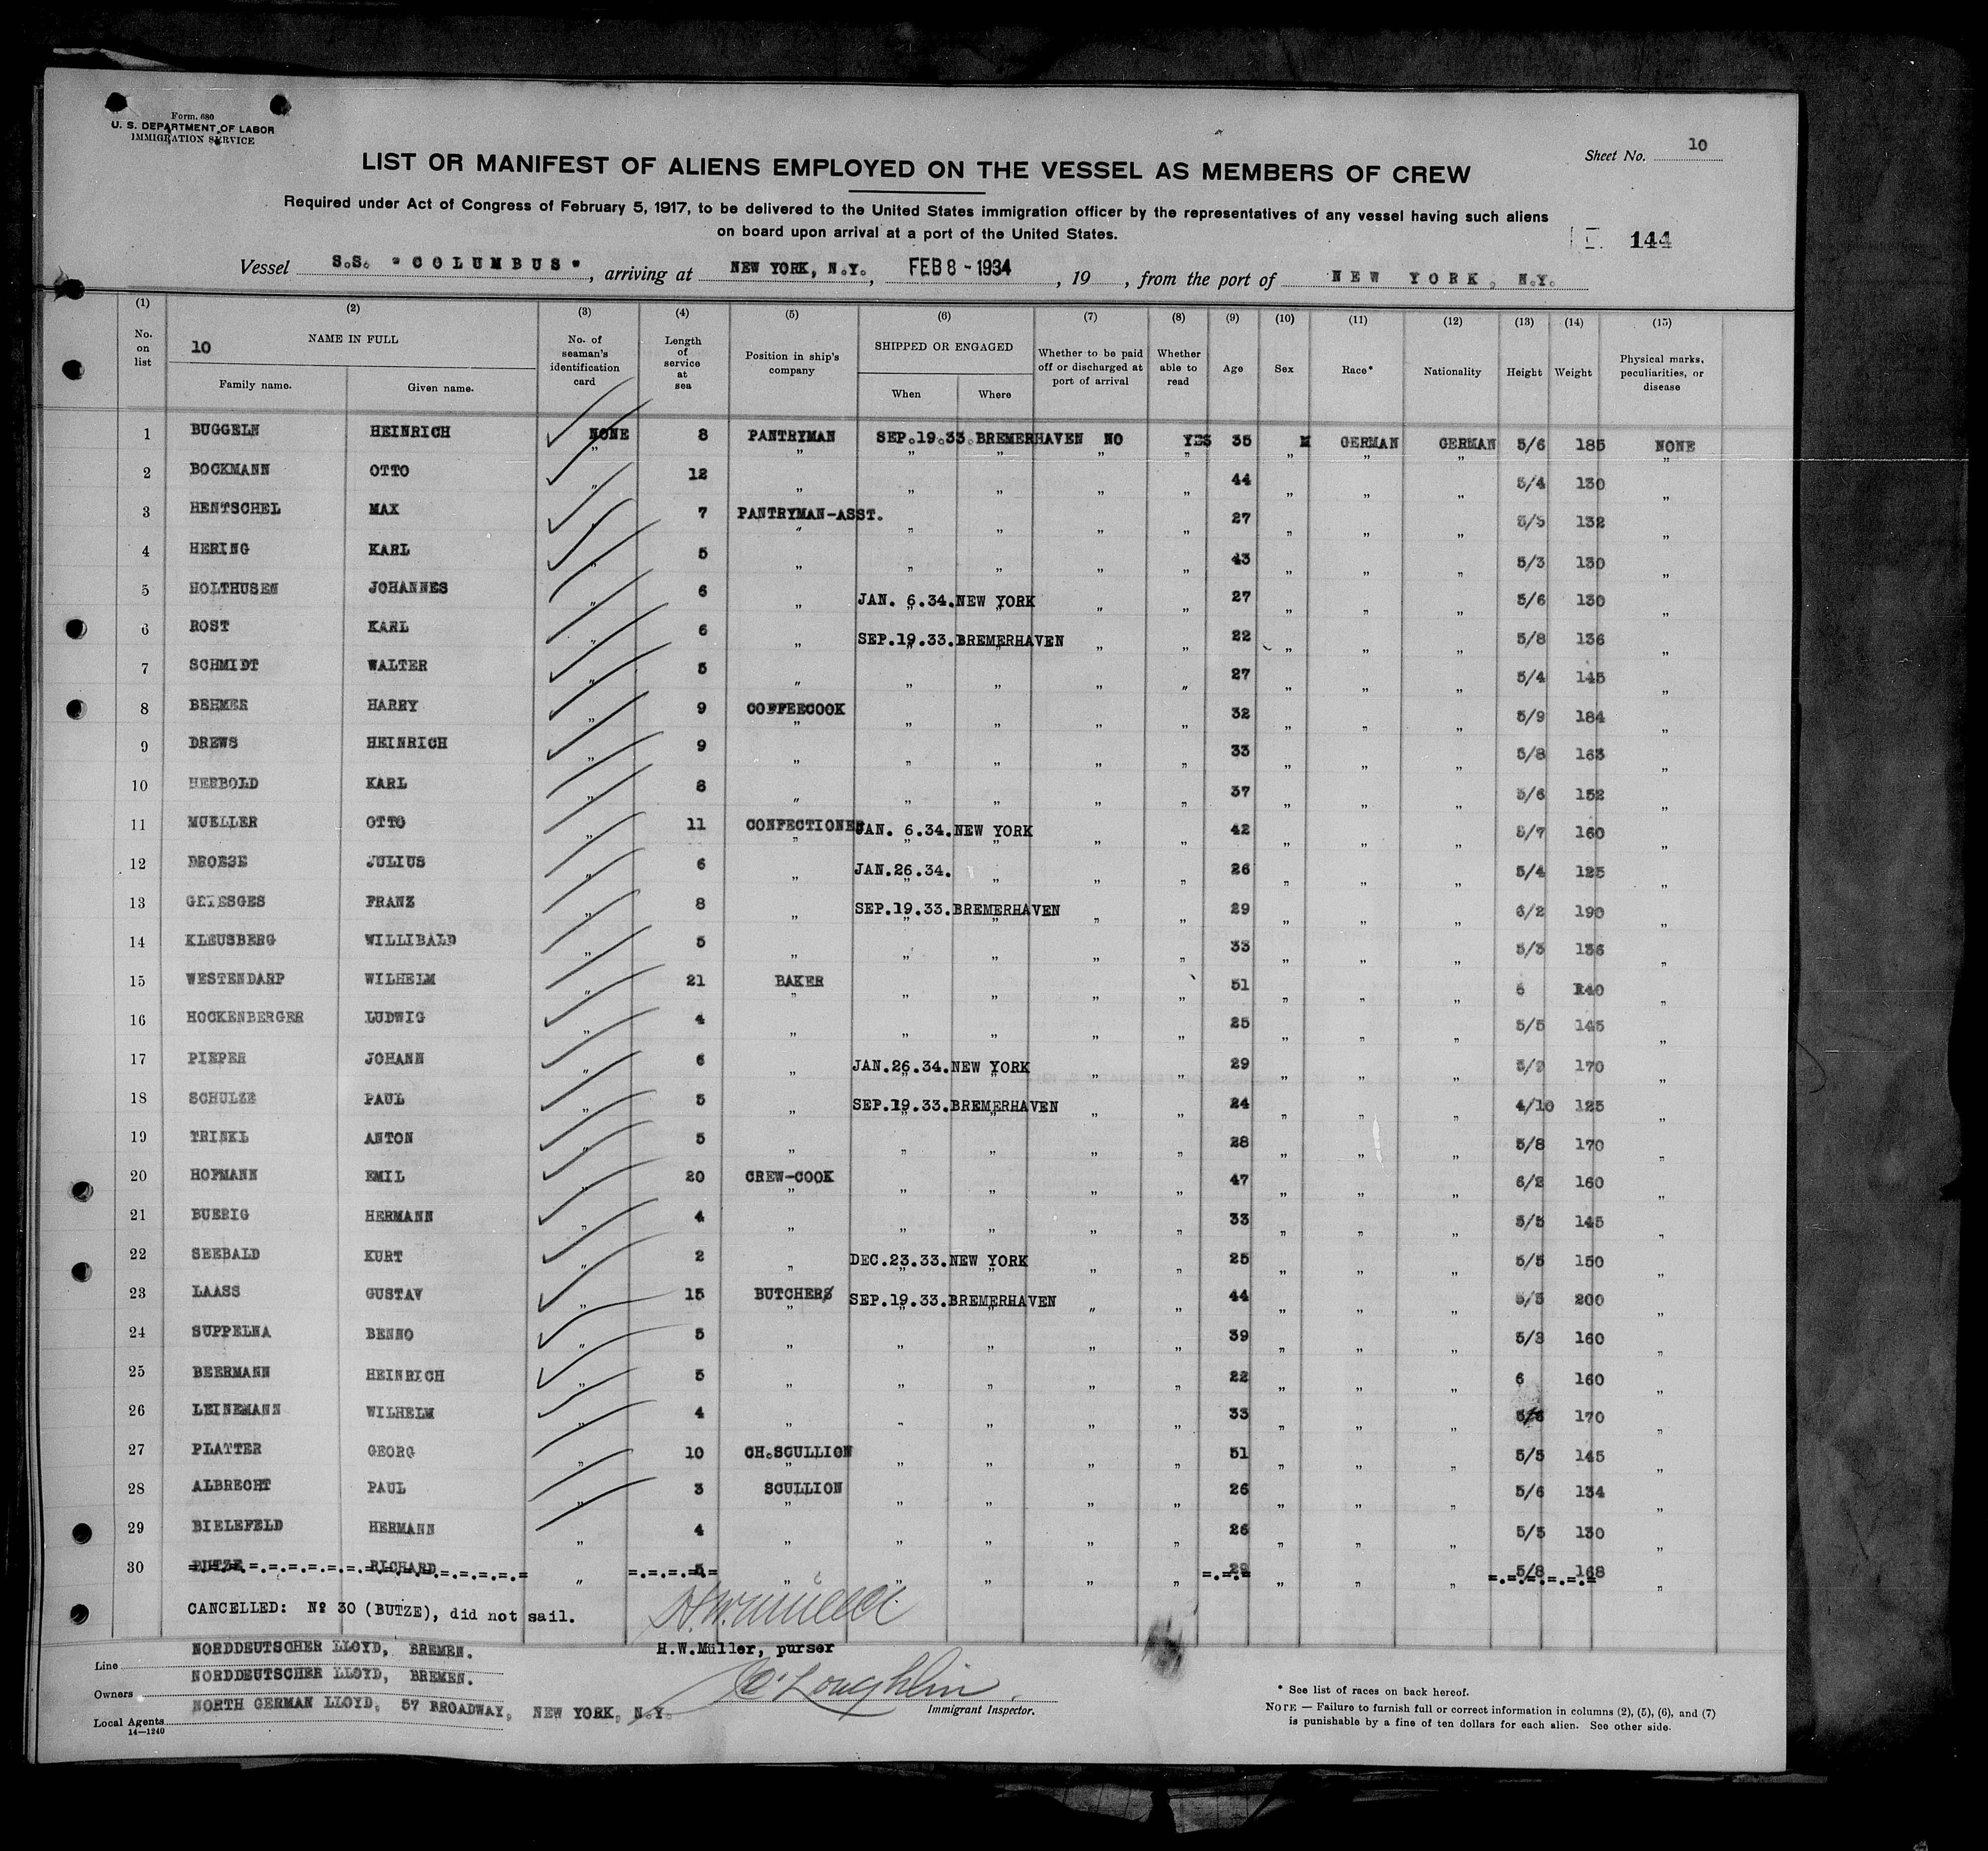 Form 680
U. S. DEPARTMENT OF LABOR
IMMIGRATION SERVICE
Sheet No. 10
LIST OR MANIFEST OF ALIENS EMPLOYED ON THE VESSEL AS MEMBERS OF CREW
Required under Act of Congress of February 5, 1917, to be delivered to the United States immigration officer by the representatives of any vessel having such aliens
on board upon arrival at a port of the United States.
144
Vessel S.S. "COLUMBUS", arriving at NEW YORK, N.Y., FEB 8 - 1934, 19 , from the port of NEW YORK, N.Y.
(1) (2) (3) (4) (5) (6) (7) (8) (9) (10) (11) (12) (13) (14) (15)
No. on list 10 NAME IN FULL Family name. Given name. No. of seaman's identification card Length of service at sea Position in ship's company SHIPPED OR ENGAGED When Where Whether to be paid off or discharged at port of arrival Whether able to read Age Sex Race* Nationality Height Weight Physical marks, peculiarities, or disease
1 BUGGELN HEINRICH NONE 8 PANTRYMAN SEP.19.33. BREMERHAVEN NO YES 35 M GERMAN GERMAN 5/6 185 NONE
2 BOCKMANN OTTO " 12 " " " " " 44 " " " 5/4 130 "
3 HENTSCHEL MAX " 7 PANTRYMAN-ASST. " " " " 27 " " " 5/5 132 "
4 HERING KARL " 5 " " " " " 43 " " " 5/3 130 "
5 HOLTHUSEN JOHANNES " 6 " JAN. 6.34. NEW YORK " " 27 " " " 5/6 130 "
6 ROST KARL " 6 " SEP.19.33. BREMERHAVEN " " 22 " " " 5/8 136 "
7 SCHMIDT WALTER " 5 " " " " " 27 " " " 5/4 145 "
8 BEHMER HARRY " 9 COFFEECOOK " " " " 32 " " " 5/9 184 "
9 DREWS HEINRICH " 9 " " " " " 33 " " " 5/8 163 "
10 HERBOLD KARL " 8 " " " " " 37 " " " 5/6 152 "
11 MUELLER OTTO " 11 CONFECTIONER JAN. 6.34. NEW YORK " " 42 " " " 5/7 160 "
12 JULIUS " 6 " JAN.26.34. " " " 26 " " " 5/4 125 "
13 GRIESGES FRANZ " 8 " SEP.19.33. BREMERHAVEN " " 29 " " " 6/2 190 "
14 KLEUSBERG WILLIBALD " 5 " " " " " 33 " " " 5/3 136 "
15 WESTENDARP WILHELM " 21 BAKER " " " " 51 " " " 6 140 "
16 HOCKENBERGER LUDWIG " 4 " " " " " 25 " " " 5/5 145 "
17 PIEPER JOHANN " 6 " JAN.26.34. NEW YORK " " 29 " " " 5/9 170 "
18 SCHULZE PAUL " 5 " SEP.19.33. BREMERHAVEN " " 24 " " " 4/10 125 "
19 TRINKL ANTON " 5 " " " " " 28 " " " 5/8 170 "
20 HOFMANN EMIL " 20 CREW-COOK " " " " 47 " " " 6/2 160 "
21 BUERIG HERMANN " 4 " " " " " 33 " " " 5/5 145 "
22 SEEBALD KURT " 2 " DEC.23.33. NEW YORK " " 25 " " " 5/5 150 "
23 LAASS GUSTAV " 15 BUTCHERS SEP.19.33. BREMERHAVEN " " 44 " " " 5/5 200 "
24 SUPPELNA BENNO " 5 " " " " " 39 " " " 5/3 160 "
25 BEERMANN HEINRICH " 5 " " " " " 22 " " " 6 160 "
26 LEINEMANN WILHELM " 4 " " " " " 33 " " " 170 "
27 PLATTER GEORG " 10 CH.SCULLION " " " " 51 " " " 5/5 145 "
28 ALBRECHT PAUL " 3 SCULLION " " " " 26 " " " 5/6 134 "
29 BIELEFELD HERMANN " 4 " " " " " 26 " " " 5/5 130 "
30 BUTZE RICHARD " 5 " " " " " 29 " " " 5/8 168 "
CANCELLED: No 30 (BUTZE), did not sail.
H.W.Müller
H.W.Müller, purser
Line NORDDEUTSCHER LLOYD, BREMEN.
Owners NORDDEUTSCHER LLOYD, BREMEN.
Local Agents NORTH GERMAN LLOYD, 57 BROADWAY, NEW YORK, N.Y.
14—1240
O'Loughlin
Immigrant Inspector.
* See list of races on back hereof.
NOTE — Failure to furnish full or correct information in columns (2), (5), (6), and (7)
is punishable by a fine of ten dollars for each alien. See other side.